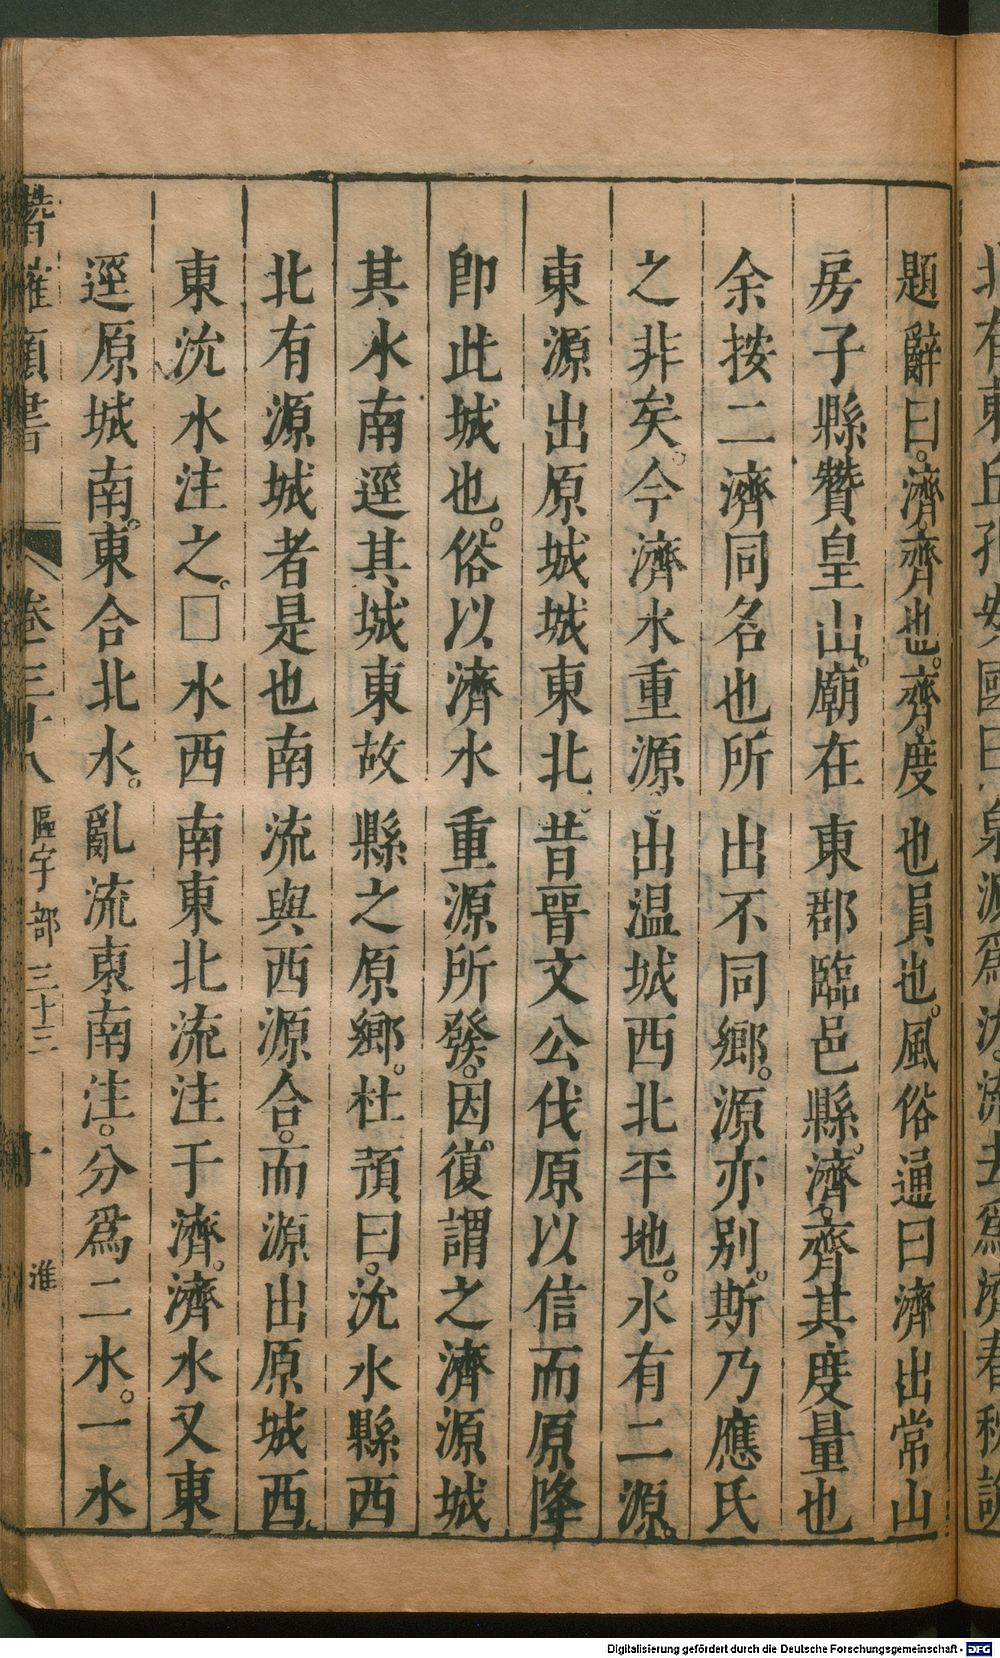 題辭曰濟齊也齊度也員也風俗通曰濟出常山
房子縣贊皇山廟在東郡臨邑縣濟齊其度量也
余按二濟同名也所出不同鄉源亦别斯乃應氏
之非矣今濟水重源出温城西北平地水有二源
東源出原城城東北昔晉文公伐原以信而原降
卽此城也俗以濟水重源所發因復謂之濟源城
其水南逕其城東故縣之原鄉杜預曰沇水縣西
北有源城者是也南流與西源合而源出原城西
東沇水注之□水西南東北流注于濟濟水又東
逕原城南東合北水亂流東南注分爲二水一水
卷三十八 區宇部三十三 十 淮
Digitalisierung gefördert durch die Deutsche Forschungsgemeinschaft - DFG